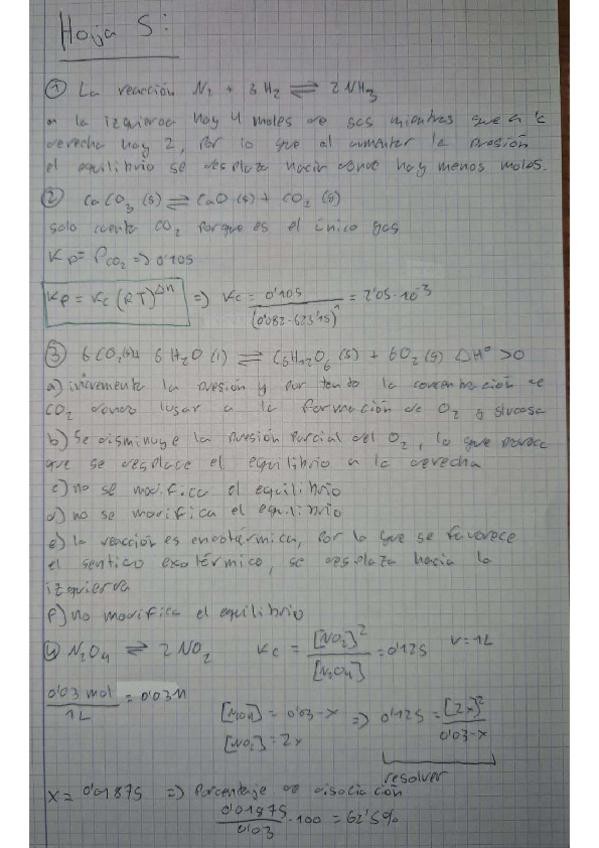 Hoja 5:
① La reacción N2 + 3H2 ⇌ 2NH3
a la izquierda hay 4 moles de gas mientras que a la
derecha hay 2, por lo que al aumentar la presión
el equilibrio se desplaza hacia donde hay menos moles.
② CaCO3 (s) ⇌ CaO (s) + CO2 (g)
solo cuenta CO2 porque es el único gas
Kp = PCO2 => 0'105
Kp = Kc (RT)^Δn => Kc = 0'105 / (0'082·623'15)^1 = 2'05·10^-3
③ 6CO2(g)+ 6H2O (l) ⇌ C6H12O6 (s) + 6O2 (g) ΔHº >0
a) incrementa la presión y por tanto la concentración de
CO2 dando lugar a la formación de O2 y glucosa
b) Se disminuye la presión parcial del O2, lo que provoca
que se desplace el equilibrio a la derecha
c) no se modifica el equilibrio
d) no se modifica el equilibrio
e) la reacción es endotérmica, por lo que se favorece
el sentido exotérmico, se desplaza hacia la
izquierda
f) no modifica el equilibrio
④ N2O4 ⇌ 2NO2 Kc = [NO2]^2 / [N2O4] = 0'125 V=1L
0'03 mol / 1L = 0'03M
[N2O4] = 0'03-x => 0'125 = [2x]^2 / 0'03-x
[NO2] = 2x
resolver
x = 0'01875 => Porcentaje de disociación
0'01875 / 0'03 · 100 = 62'5%